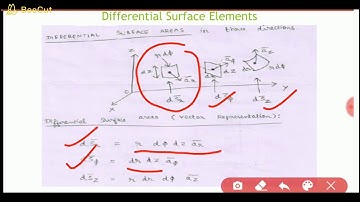 BeeCut
Differential Surface Elements
DIFFERENTIAL SURFACE AREAS in three directions.
z
r dφ
dz
a̅r
dS̅r
a̅φ
dz
dr
dS̅φ
r dφ
dr
a̅z
dS̅z
x
y
Differential Surface areas (Vector Representation):
dS̅r = r dφ dz a̅r
dS̅φ = dr dz a̅φ
dS̅z = r dr dφ a̅z